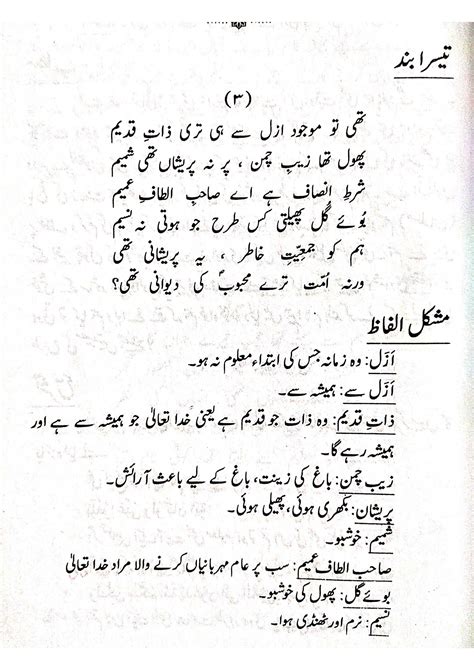 تیسرا بند
(۳)
تھی تو موجود ازل سے ہی تری ذاتِ قدیم
پھول تھا زیبِ چمن، پر نہ پریشاں تھی شمیم
شرطِ انصاف ہے اے صاحبِ الطافِ عمیم
بُوئے گُل پھیلتی کس طرح جو ہوتی نہ نسیم
ہم کو جمعیّتِ خاطر، یہ پریشانی تھی
ورنہ اُمّت ترے محبوبؐ کی دیوانی تھی؟
مشکل الفاظ
اَزَل: وہ زمانہ جس کی ابتداء معلوم نہ ہو۔
اَزَل سے: ہمیشہ سے۔
ذاتِ قدیم: وہ ذات جو قدیم ہے یعنی خدا تعالیٰ جو ہمیشہ سے ہے اور
ہمیشہ رہے گا۔
زیبِ چمن: باغ کی زینت، باغ کے لیے باعث آرائش۔
پریشان: بکھری ہوئی، پھیلی ہوئی۔
شمیم: خوشبو۔
صاحب الطاف عمیم: سب پر عام مہربانیاں کرنے والا مراد خدا تعالیٰ
بوئے گل: پھول کی خوشبو۔
نسیم: نرم اور ٹھنڈی ہوا۔